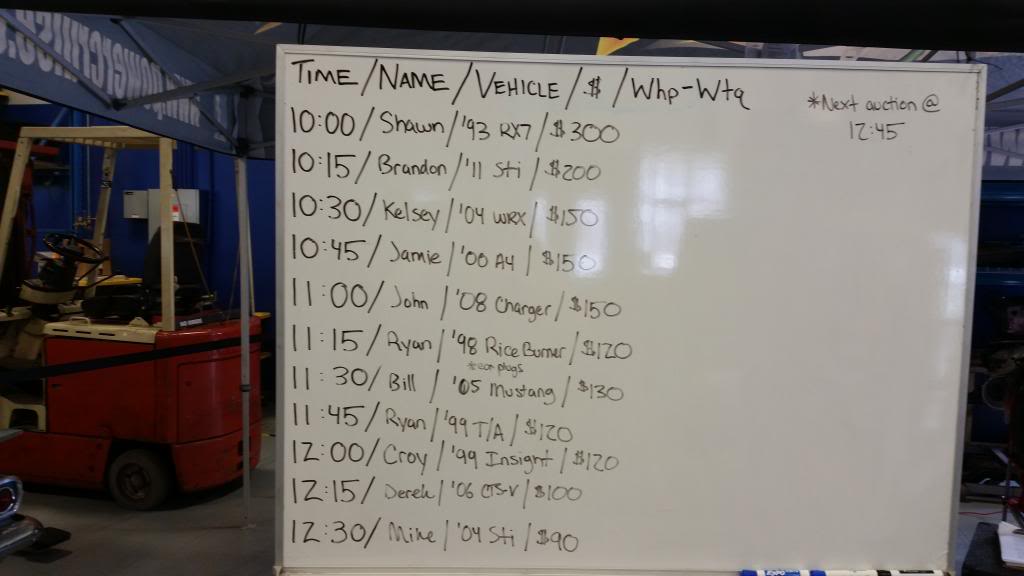 TIME/NAME/VEHICLE/$/Whp-Wtq
*Next auction @
12:45
10:00/Shawn/'93 RX7/$300
10:15/Brandon/'11 Sti/$200
10:30/Kelsey/'04 WRX/$150
10:45/Jamie/'00 A4/$150
11:00/John/'08 Charger/$150
11:15/Ryan/'98 Rice Burner/$120
*ear plugs
11:30/Bill/'05 Mustang/$130
11:45/Ryan/'99 T/A/$120
12:00/Croy/'99 Insight/$120
12:15/Derek/'06 CTS-V/$100
12:30/Mike/'04 Sti/$90
EXPO